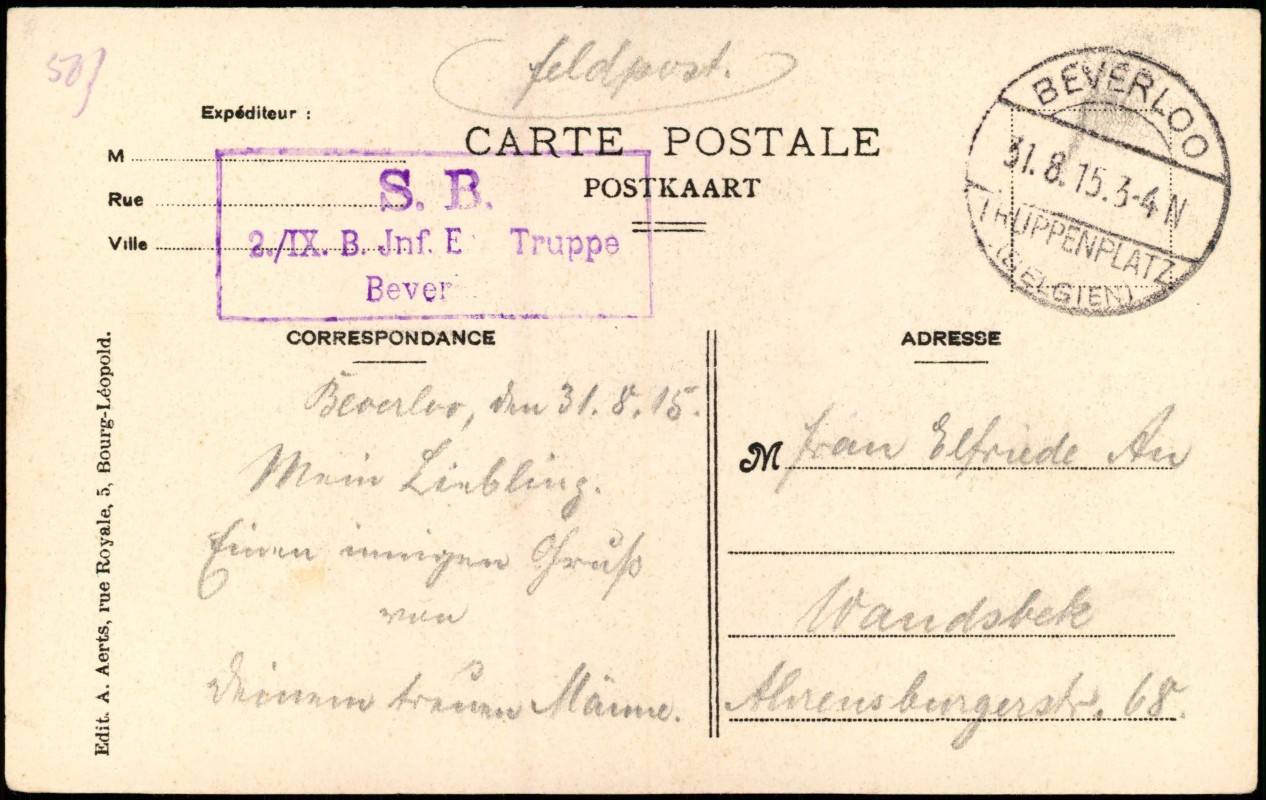 50
Feldpost.
Expéditeur :
M
Rue
Ville
CARTE POSTALE
POSTKAART
S. B.
2./IX. B. Jnf. E Truppe
Bever
BEVERLOO
31.8.15.3-4 N
TRUPPENPLATZ
(BELGIEN)
CORRESPONDANCE
Beverloo, den 31.8.15.
Mein Liebling.
Einen innigen Gruß
von
Deinem treuen Männe.
ADRESSE
M Frau Elfriede An
Wandsbek
Ahrensburgerstr. 68.
Edit. A. Aerts, rue Royale, 5, Bourg-Léopold.